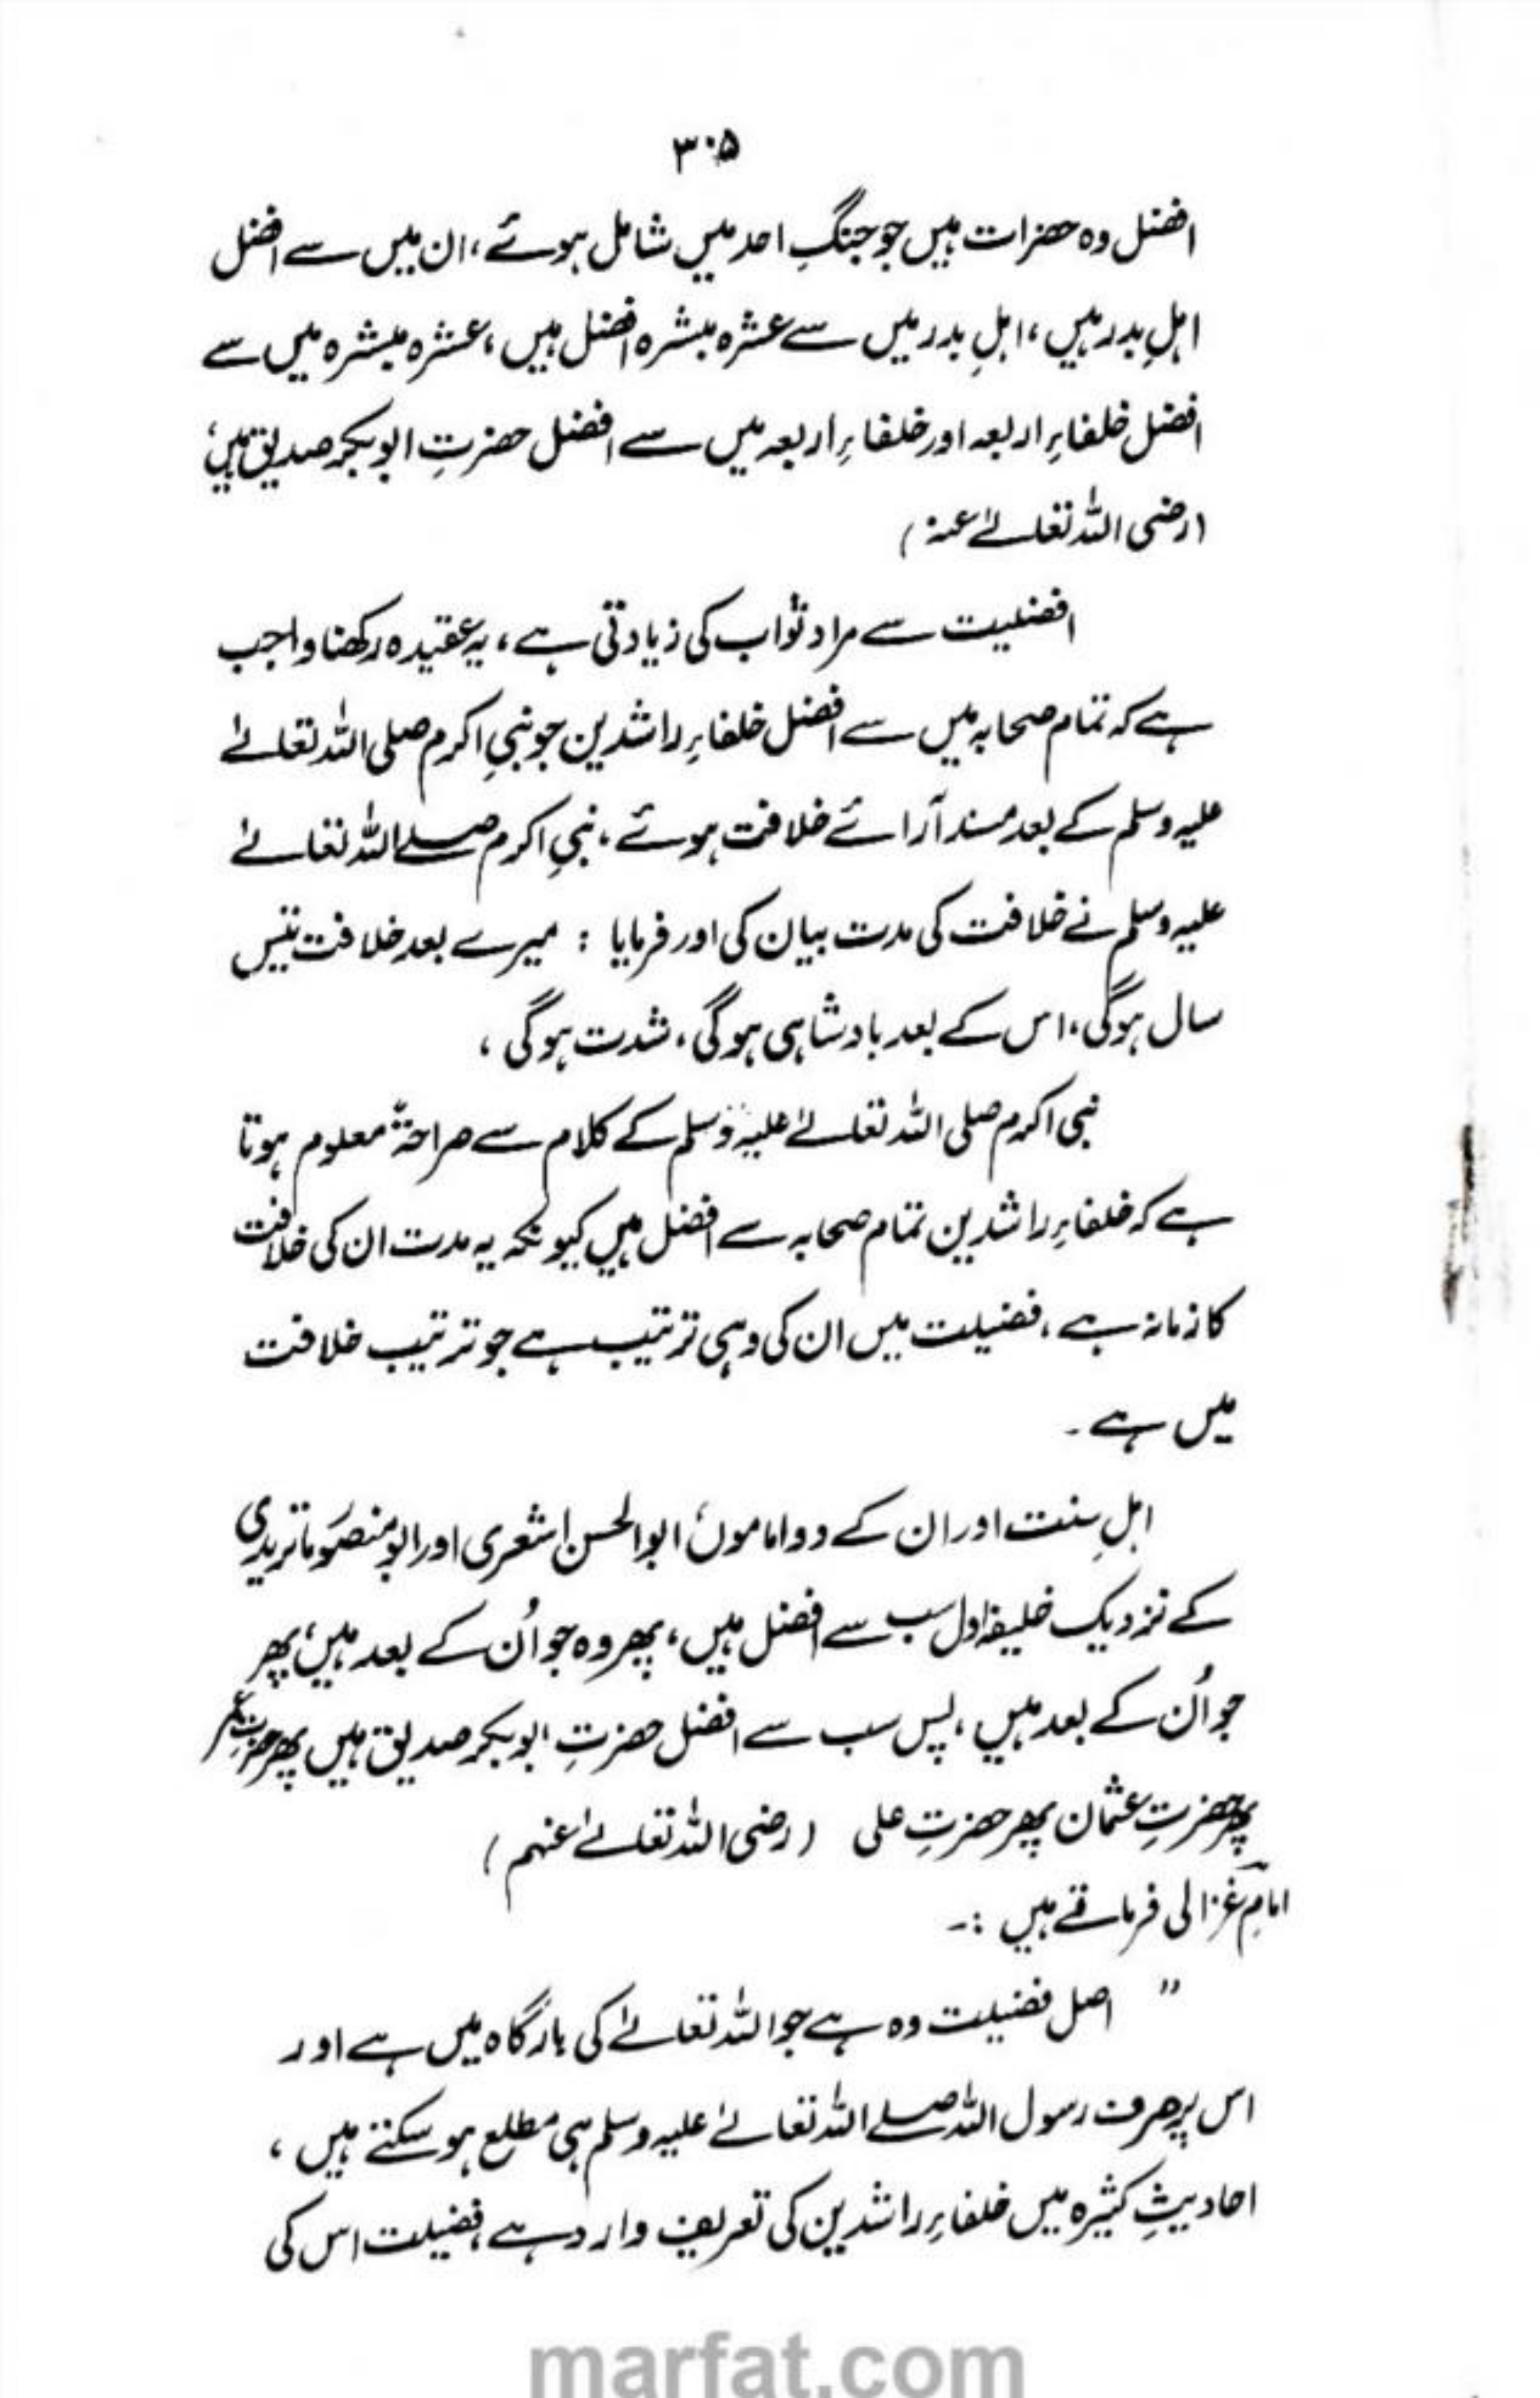 ۳۰۵
افضل وہ حضرات ہیں جو جنگِ احد میں شامل ہوئے ، ان میں سے افضل
اہلِ بدر ہیں ، اہلِ بدر میں سے عشرہ مبشرہ افضل ہیں ، عشرہ مبشرہ میں سے
افضل خلفاءِ اربعہ اور خلفاءِ اربعہ میں سے افضل حضرتِ ابوبکر صدیق ہیں ،
(رضی اللہ تعالےٰ عنہ)
افضلیت سے مراد ثواب کی زیادتی ہے ، یہ عقیدہ رکھنا واجب
ہے کہ تمام صحابہ میں سے افضل خلفاءِ راشدین جو نبیِ اکرم صلی اللہ تعالےٰ
علیہ وسلم کے بعد مسند آرائے خلافت ہوئے ، نبیِ اکرم صلے اللہ تعالےٰ
علیہ وسلم نے خلافت کی مدت بیان کی اور فرمایا : میرے بعد خلافت تیس
سال ہوگی ، اس کے بعد بادشاہی ہوگی ، شدت ہوگی ،
نبی اکرم صلی اللہ تعالےٰ علیہ وسلم کے کلام سے صراحۃً معلوم ہوتا
ہے کہ خلفاءِ راشدین تمام صحابہ سے افضل ہیں کیونکہ یہ مدت ان کی خلافت
کا زمانہ ہے ، فضیلت میں ان کی وہی ترتیب ہے جو ترتیب خلافت
میں ہے ۔
اہلِ سنت اور ان کے دو اماموں ، ابوالحسن اشعری اور ابو منصور ماتریدی
کے نزدیک خلیفہ اول سب سے افضل ہیں ، پھر وہ جو اُن کے بعد ہیں ، پھر
جو اُن کے بعد ہیں ، پس سب سے افضل حضرتِ ابوبکر صدیق ہیں پھر حضرتِ عمر
پھر حضرتِ عثمان پھر حضرتِ علی (رضی اللہ تعالےٰ عنہم)
امام غزالی فرماتے ہیں :۔
" اصل فضیلت وہ ہے جو اللہ تعالےٰ کی بارگاہ میں ہے اور
اس پر صرف رسول اللہ صلے اللہ تعالےٰ علیہ وسلم ہی مطلع ہو سکتے ہیں ،
احادیثِ کثیرہ میں خلفاءِ راشدین کی تعریف وارد ہے ، فضیلت اس کی
marfat.com